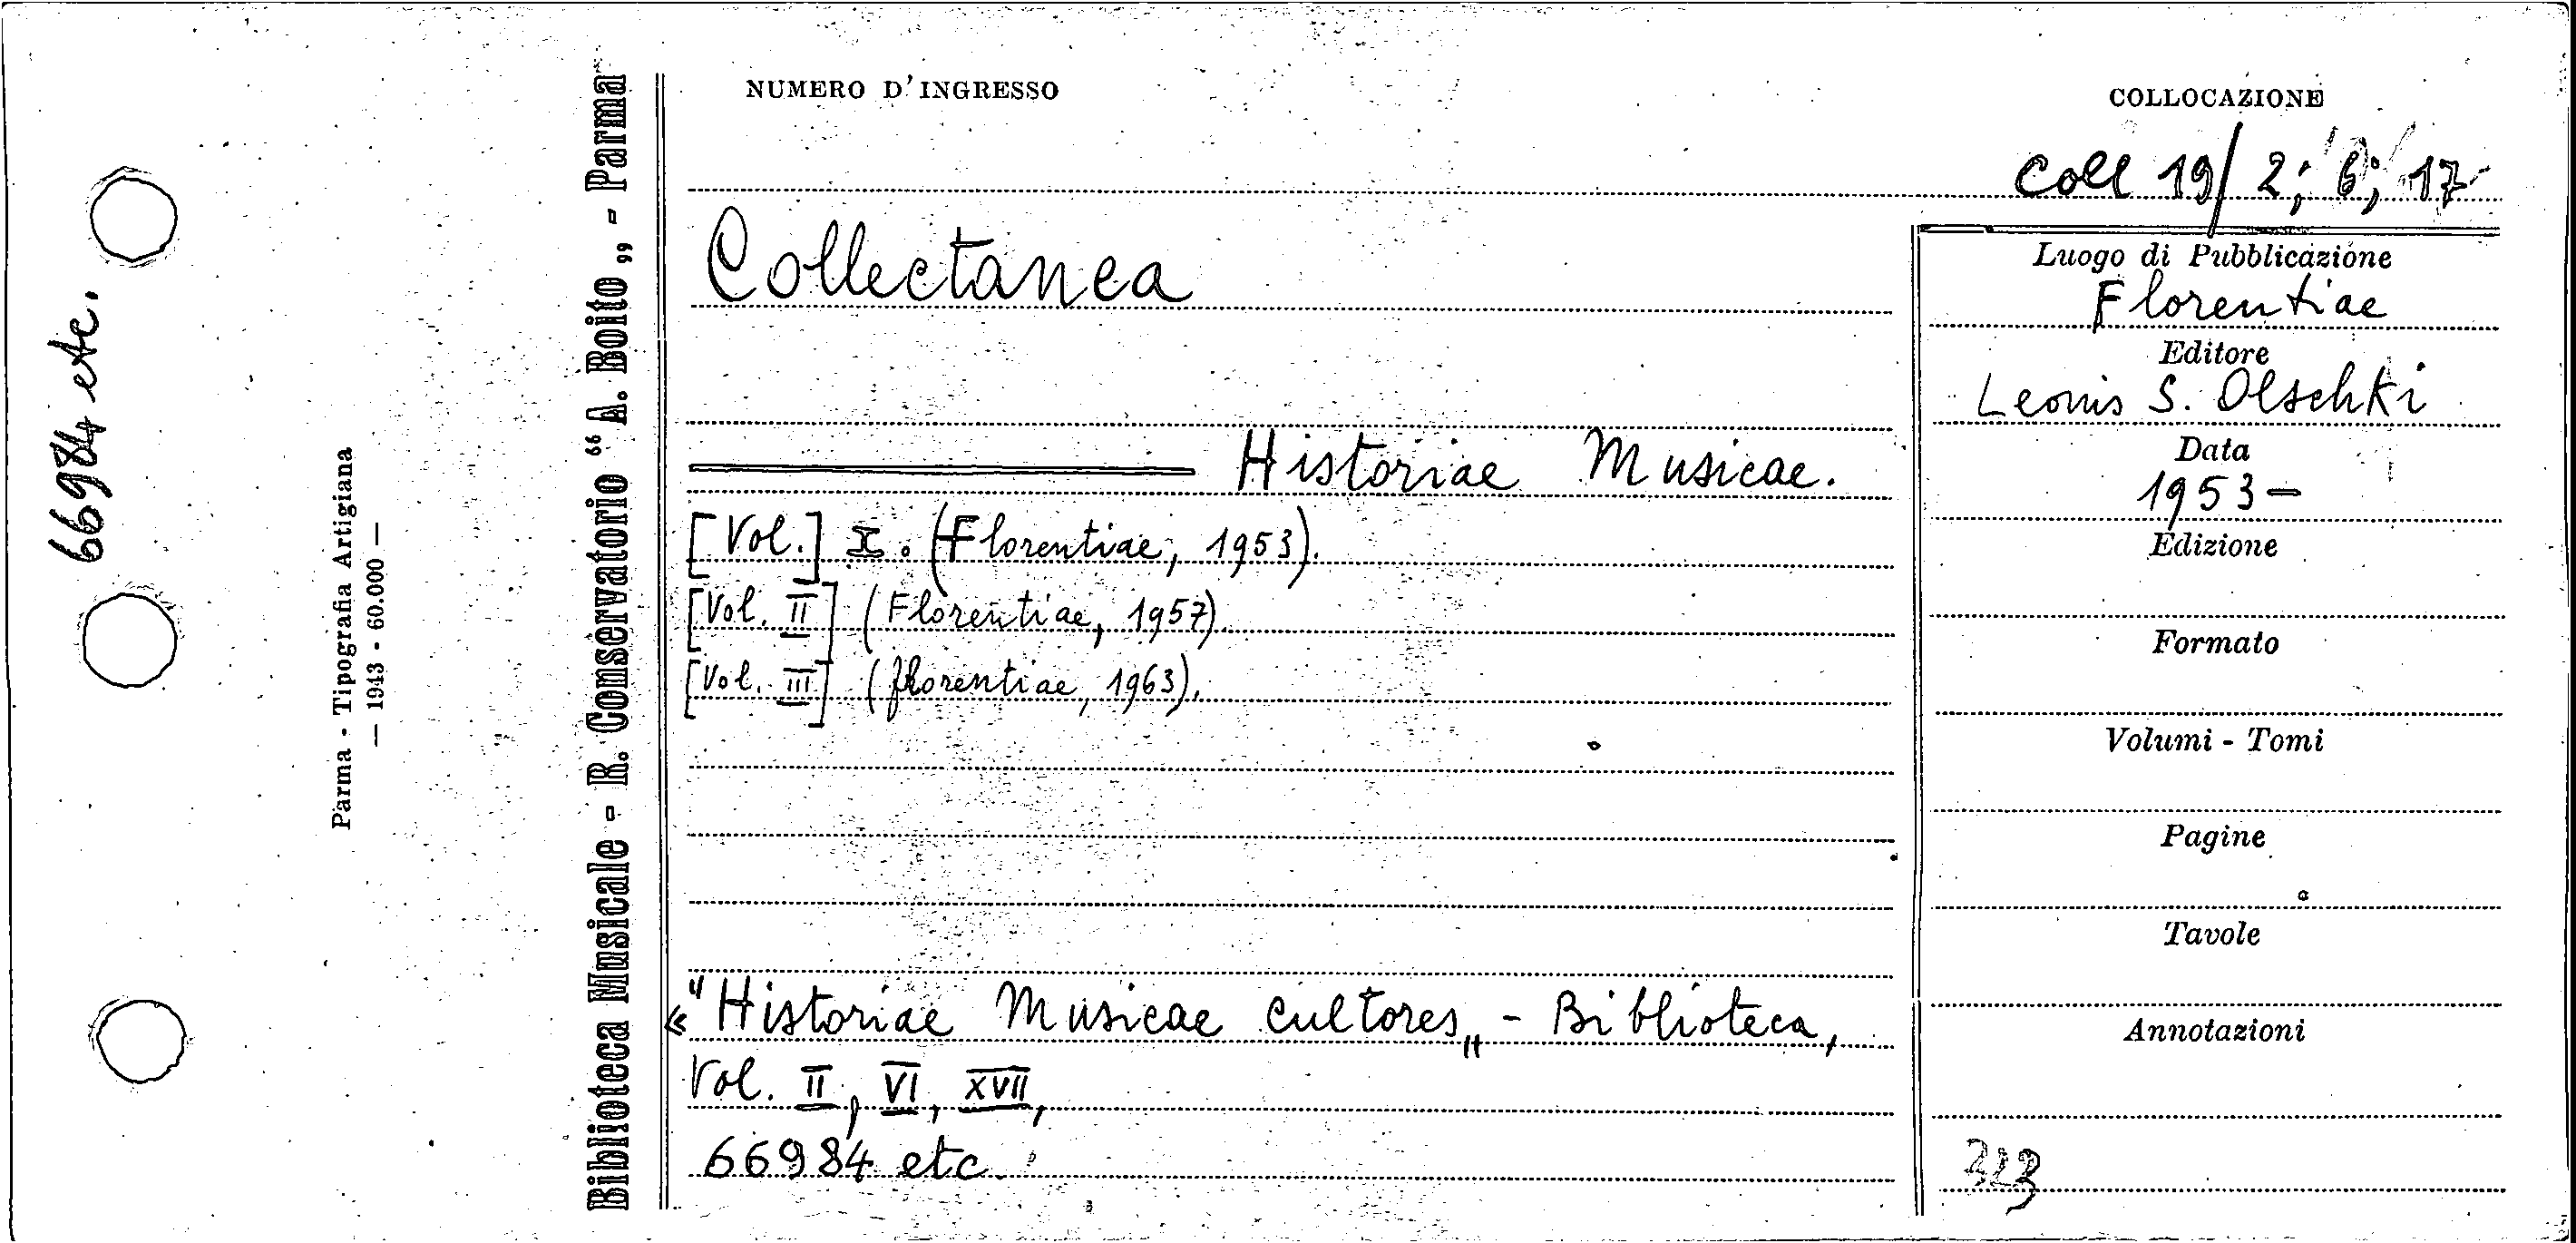 66984 etc.
Parma - Tipografia Artigiana
— 1943 - 60.000 —
Biblioteca Musicale - R. Conservatorio “ A. Boito „ - Parma
NUMERO D'INGRESSO
COLLOCAZIONE
Coll 19/2; 6; 17
Collectanea
Historiae Musicae.
[Vol.] I. (Florentiae, 1953).
[Vol. II] (Florentiae, 1957).
[Vol. III] (florentiae, 1963).
«"Historiae Musicae cultores„ - Biblioteca,
Vol. II, VI, XVII,
66984 etc.
Luogo di Pubblicazione
Florentiae
Editore
Leonis S. Olschki
Data
1953 —
Edizione
Formato
Volumi - Tomi
Pagine
Tavole
Annotazioni
323